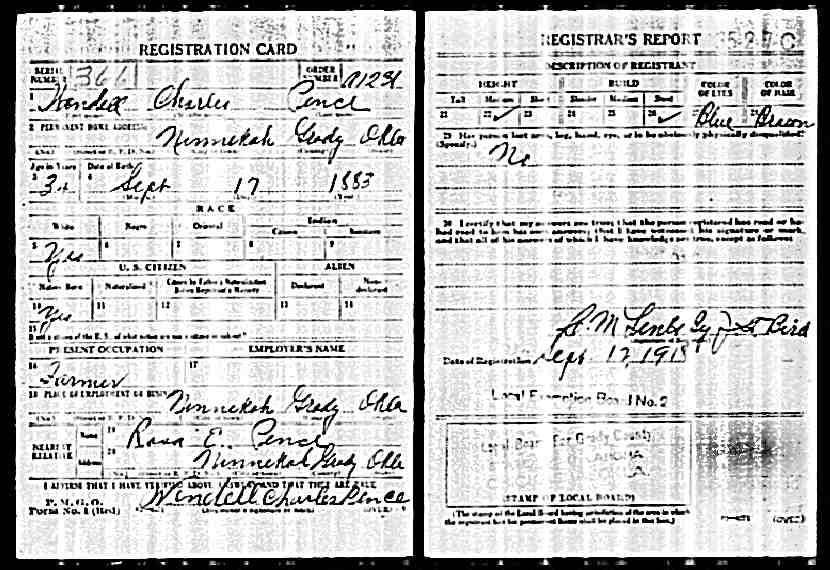 REGISTRATION CARD
SERIAL NUMBER 1366
ORDER NUMBER A1231
1 Wendell Charles Pence
2 PERMANENT HOME ADDRESS:
Ninnekah Grady Okla
Age in Years Date of Birth
3 34 4 Sept 17 1883
RACE
White Negro Oriental Indian
Citizen Noncitizen
5 Yes 6 7 8 9
U. S. CITIZEN ALIEN
Native Born Naturalized Citizen by Father's Naturalization Before Registrant's Majority Declarant Non-declarant
10 Yes 11 12 13 14
15
If not a citizen of the U. S., of what nation are you a citizen or subject?
PRESENT OCCUPATION EMPLOYER'S NAME
16 Farmer 17
18 PLACE OF EMPLOYMENT OR BUSINESS:
Ninnekah Grady Okla
NEAREST RELATIVE
Name 19 Rosa E. Pence
Address 20 Ninnekah Grady Okla
I AFFIRM THAT I HAVE VERIFIED ABOVE ANSWERS AND THAT THEY ARE TRUE
P. M. G. O.
Form No. 1 (Red)
Wendell Charles Pence
(OVER)
REGISTRAR'S REPORT
DESCRIPTION OF REGISTRANT
HEIGHT BUILD COLOR OF EYES COLOR OF HAIR
Tall Medium Short Slender Medium Stout
21 22 ✓ 23 24 25 26 ✓ Blue Brown
29 Has person lost arm, leg, hand, eye, or is he obviously physically disqualified?
(Specify.)
No
30 I certify that my answers are true; that the person registered has read or has
had read to him his own answers; that I have witnessed his signature or mark,
and that all of his answers of which I have knowledge are true, except as follows:
Date of Registration Sept 12, 1918
Local Exemption Board No. 2
Local Board For Grady County
(STAMP OF LOCAL BOARD)
(The stamp of the Local Board having jurisdiction of the area in which
the registrant has his permanent home shall be placed in this box.)
(OVER)